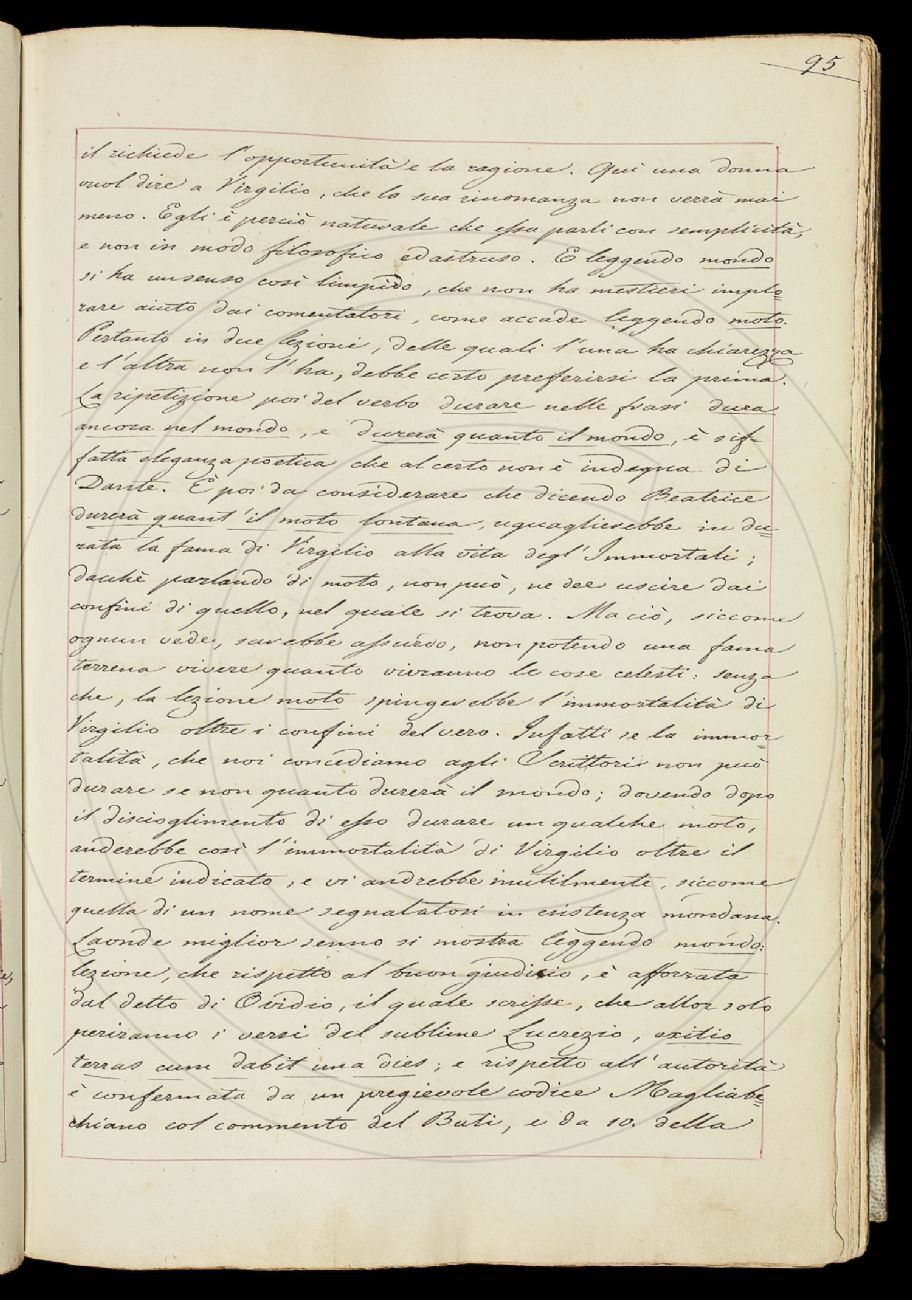 95
il richiede l'opportunità e la ragione. Qui una donna
vuol dire a Virgilio, che la sua rinomanza non verrà mai
meno. Egli è perciò naturale che essa parli con semplicità,
e non in modo filosofico ed astruso. E leggendo mondo
si ha un senso così limpido, che non ha mestieri implo=
rare aiuto dai comentatori, come accade leggendo moto.
Pertanto in due lezioni, delle quali l'una ha chiarezza
e l'altra non l'ha, debbe certo preferirsi la prima.
La ripetizione poi del verbo durare nelle frasi dura
ancora nel mondo, e durerà quanto il mondo, è sif-
fatta eleganza poetica che al certo non è indegna di
Dante. È poi da considerare che dicendo Beatrice
durerà quant'il moto lontana, uguaglierebbe in du=
rata la fama di Virgilio alla vita degl'Immortali;
dacchè parlando di moto, non può, ne dee uscire dai
confini di quello, nel quale si trova. Ma ciò, siccome
ognun vede, sarebbe assurdo, non potendo una fama
terrena vivere quanto vivranno le cose celesti: senza
che, la lezione moto spingerebbe l'immortalità di
Virgilio oltre i confini del vero. Infatti se la immor=
talità, che noi concediamo agli Scrittori non può
durare se non quanto durerà il mondo; dovendo dopo
il discioglimento di esso durare un qualche moto,
anderebbe così l'immortalità di Virgilio oltre il
termine indicato, e vi andrebbe inutilmente, siccome
quella di un nome segnalatosi in esistenza mondana.
Laonde miglior senno si mostra leggendo mondo:
lezione, che rispetto al buon giudizio, è afforzata
dal detto di Ovidio, il quale scrisse, che allor solo
periranno i versi del sublime Lucrezio, exitio
terras cum dabit una dies; e rispetto all'autorità
è confermata da un pregievole codice Magliabe=
chiano col commento del Buti, e da 10. della